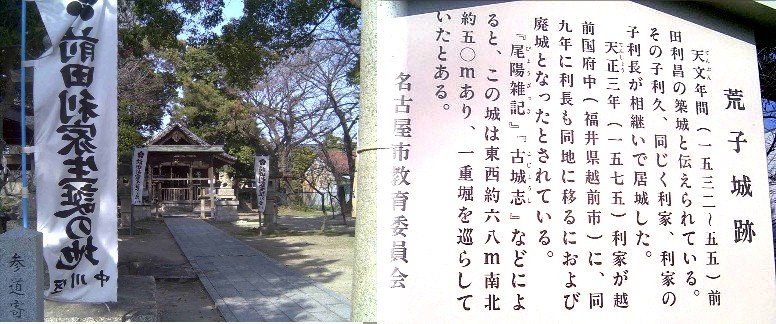 前田利家生誕の地
中川区
参道寄
荒子城跡
天文年間(一五三二~五五)前
田利昌の築城と伝えられている。
その子利久、同じく利家、利家の
子利長が相継いで居城した。
天正三年(一五七五)利家が越
前国府中(福井県越前市)に、同
九年に利長も同地に移るにおよび
廃城となったとされている。
『尾陽雑記』『古城志』などによ
ると、この城は東西約六八m南北
約五〇mあり、一重堀を巡らして
いたとある。
名古屋市教育委員会